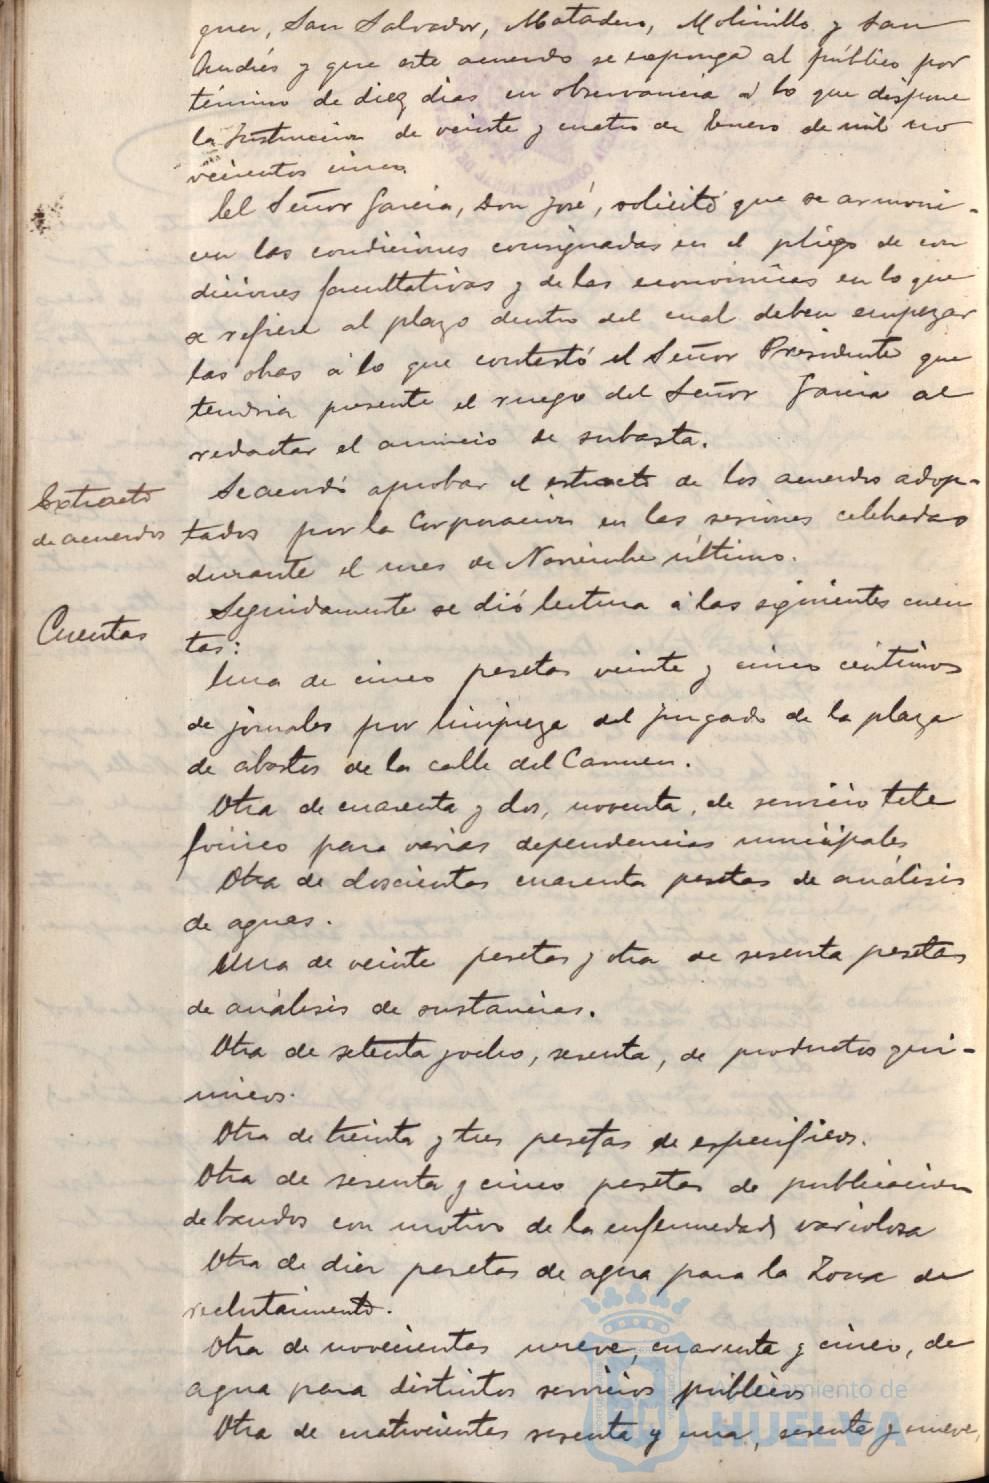 quer, San Salvador, Matadero, Molinillo y San
Andrés y que este acuerdo se exponga al público por
término de diez dias en observancia á lo que dispone
la Instruccion de veinte y cuatro de Enero de mil no
vecientos cinco.
El Señor Garcia, Don José, solicitó que se armoni-
cen las condiciones consignadas en el pliego de con
diciones facultativas y de las economicas en lo que
se refiere al plazo dentro del cual deben empezar
las obras á lo que contestó el Señor Presidente que
tendria presente el ruego del Señor Garcia al
redactar el anuncio de subasta.
Extracto
de acuerdos
Se acordó aprobar el extracto de los acuerdos adop-
tados por la Corporacion en las sesiones celebradas
durante el mes de Noviembre último.
Cuentas
Seguidamente se dió lectura á las siguientes cuen
tas:
Una de cinco pesetas veinte y cinco céntimos
de jornales por limpieza del juzgado de la plaza
de abastos de la calle del Carmen.
Otra de cuarenta y dos, noventa, de servicio tele
fónico para varias dependencias municipales
Otra de doscientas cuarenta pesetas de análisis
de aguas.
Una de veinte pesetas y otra de sesenta pesetas
de análisis de sustancias.
Otra de setenta y ocho, sesenta, de productos quí-
micos.
Otra de treinta y tres pesetas de especificos.
Otra de sesenta y cinco pesetas de publicacion
de bandos con motivo de la enfermedad variolosa
Otra de diez pesetas de agua para la Zona de
reclutamiento.
Otra de novecientas nueve, cuarenta y cinco, de
agua para distintos servicios públicos
Otra de cuatrocientas sesenta y una, sesenta y nueve,
Ayuntamiento de
HUELVA